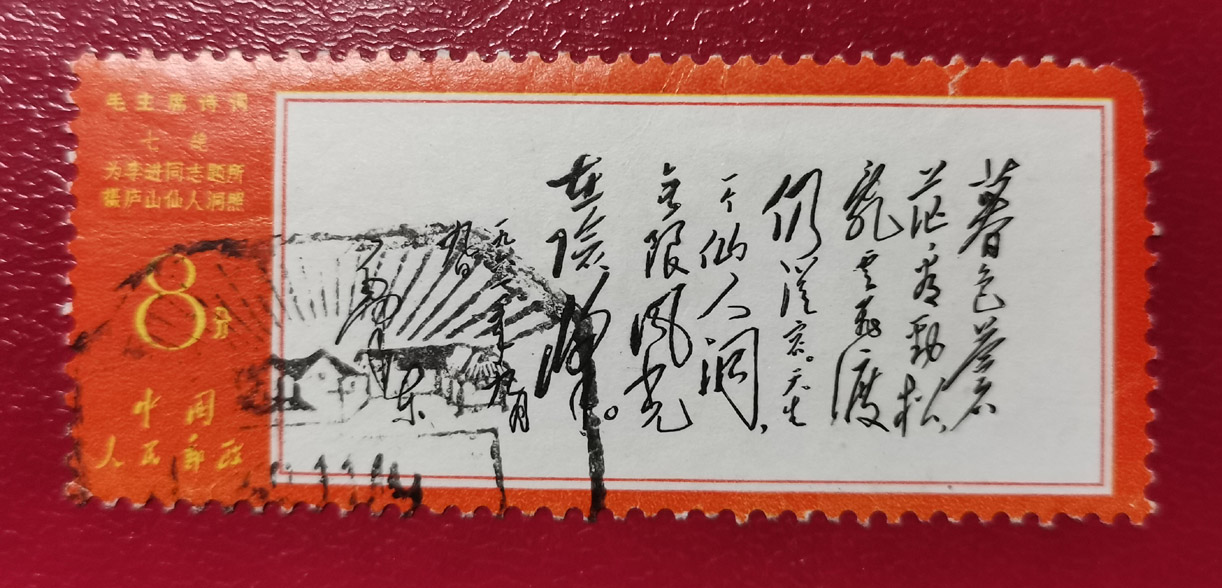 毛主席诗词
七绝
为李进同志题所
摄庐山仙人洞照
8分
中国
人民邮政
暮色苍
茫看劲松,
乱云飞渡
仍从容。天生
一个仙人洞,
无限风光
在险峰。
一九六一年九月
毛泽东